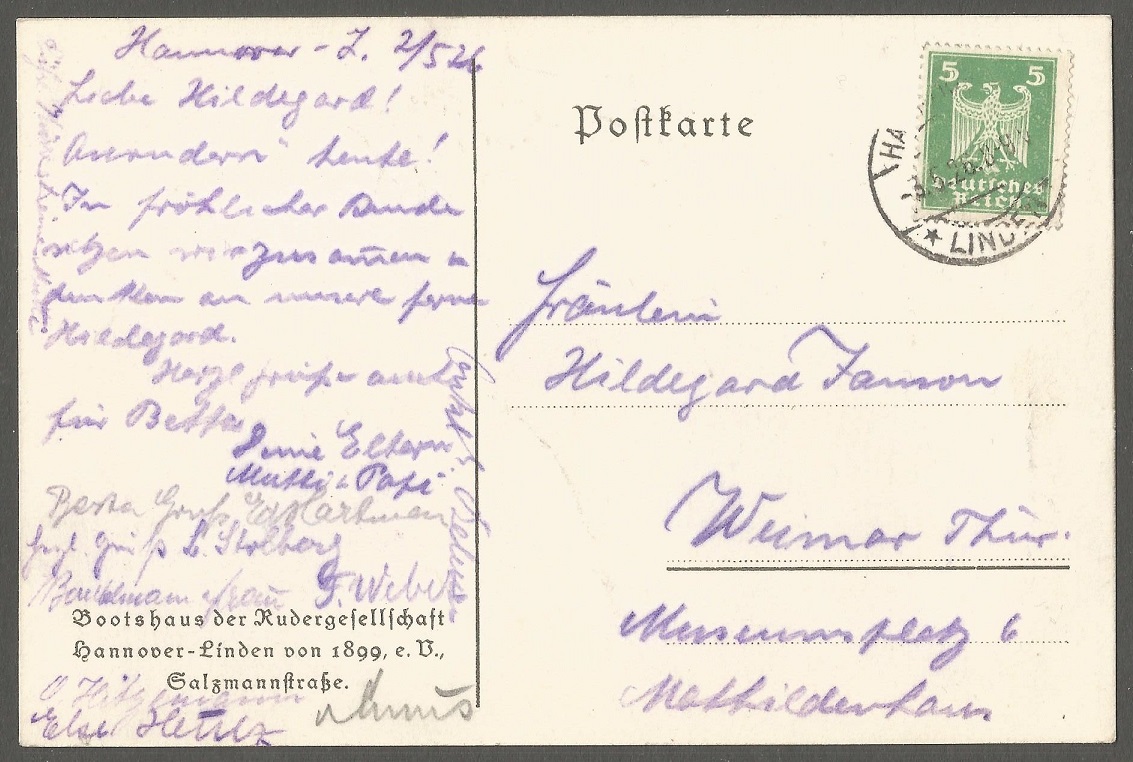 Hannover - L. 2/5 26
Liebe Hildegard!
heute!
In fröhlicher Runde
sitzen wir zusam̄en u
denken an unsere ferne
Hildegard.
Herzl grüße
für
Deine Eltern
Mutti u Papi
Beste Gruß Ed Hartman
Hrzl. Gruß L. Stolberg
Frau F. Weber
Bootshaus der Rudergesellschaft
Hannover-Linden von 1899, e. V.,
Salzmannstraße.
Else
Postkarte
5 5
Deutsches
Reich
HA
5.26.
★ LINDEN
Fräulein
Hildegard Janson
Weimar Thür.
Museumsplatz 6
Mathildenhaus